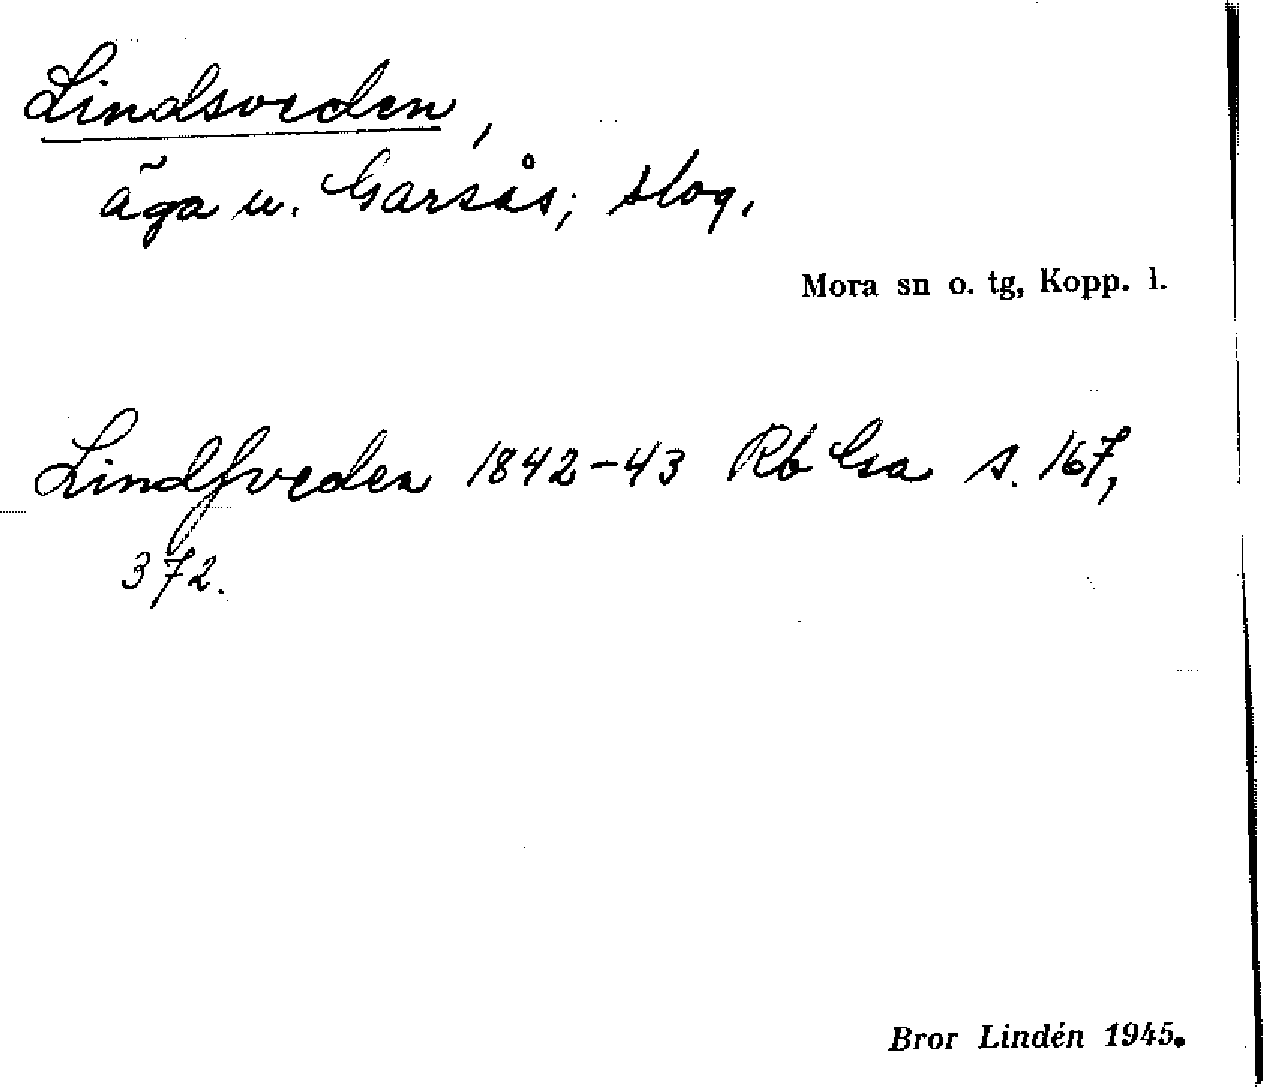 Lindsveden,
äga u. Garsås; skog.
Mora sn o. tg, Kopp. l.
Lindſveden 1842-43 Rb Gsa s. 167,
372.
Bror Lindén 1945.